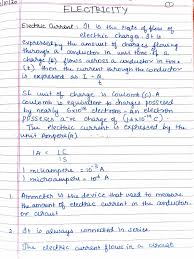 ELECTRICITY
Electric Current : It is the rate of flow of
electric charge. It is
expressed by the amount of charges flowing
through a conductor in unit time. If a
charge (Q) flows across a conductor in time
(t) then the current through the conductor
is expressed as I = Q
t
SI unit of charge is coulomb (C). A
coulomb is equivalent to charges possessed
by nearly 6x10¹⁸ electrons. An electron
possesses a -ve charge of
The electric current is expressed by the
unit Ampere (A)
1A = 1C
1S
1 milliampere = 10⁻³ A
1 microampere = 10⁻⁶ A
1. Ammeter is the device that used to measure
the amount of electric current in the conductor
or circuit
2. It is always connected in series.
The electric current flows in a circuit